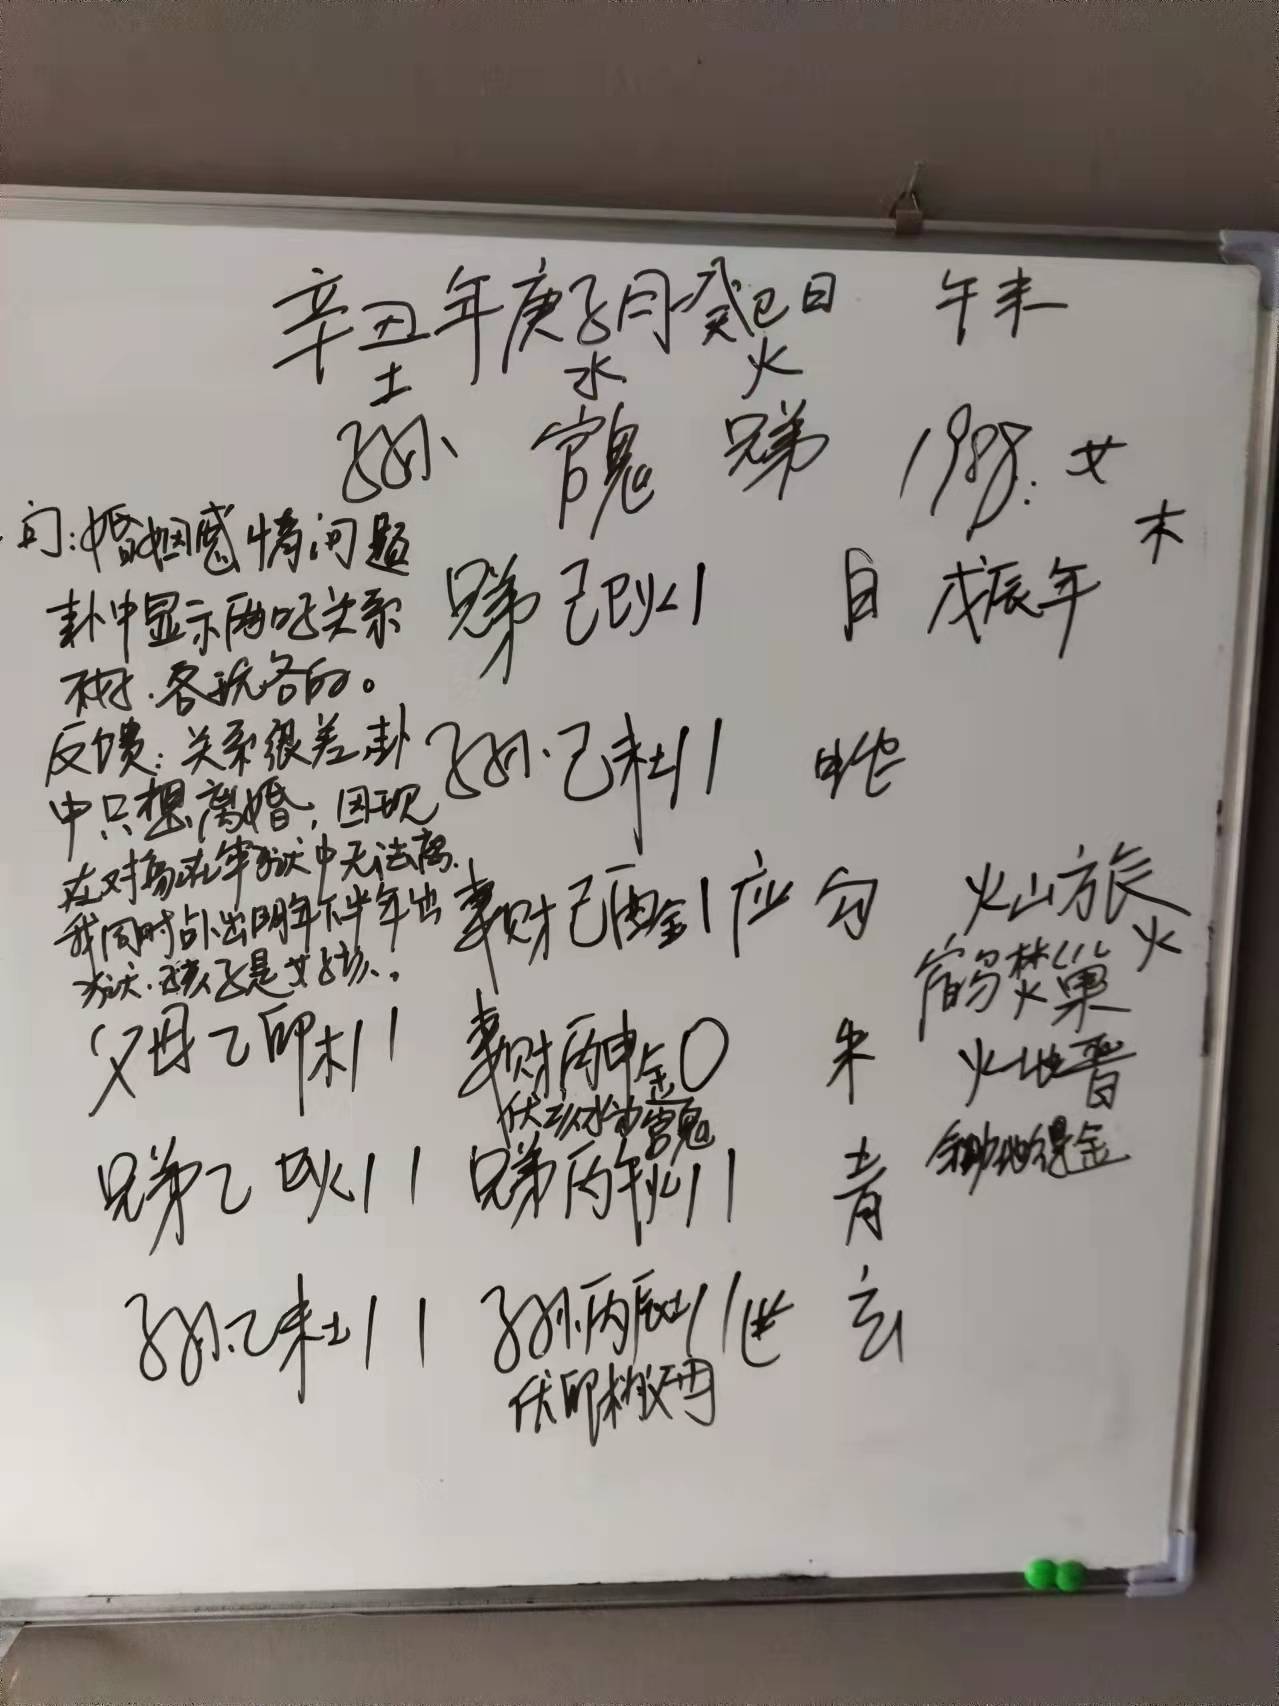 辛丑年庚子月癸巳日 午未
土 水 火
子孙 官鬼 兄弟 1988:女
木
问:婚姻感情问题
卦中显示两口关系
不好.各玩各的。
反馈:关系很差卦
中只想离婚,因现
在对方在牢狱中无法离.
我同时占出明年下半年出
狱.孩子是女孩.。
兄弟己巳火1 白 戊辰年
子孙.己未土11 蛇
妻财己酉金1应 勾 火山旅
火
宿鸟焚巢
父母乙卯木11 妻财丙申金O 朱 火地晋
伏亥水官鬼
兄弟乙巳火11 兄弟丙午火11 青 锄地得金
子孙.乙未土11 子孙.丙辰土11世 玄
伏卯木父母